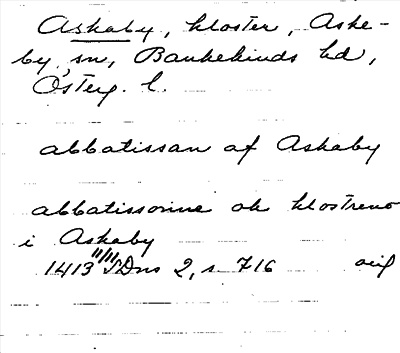 Askaby, kloster, Aske-
by sn, Bankekinds hd,
Österg. l.
abbatissan af Askaby
abbatissonne ok klostreno
i Askaby
1413 11/11 SDns 2, s 716 orig